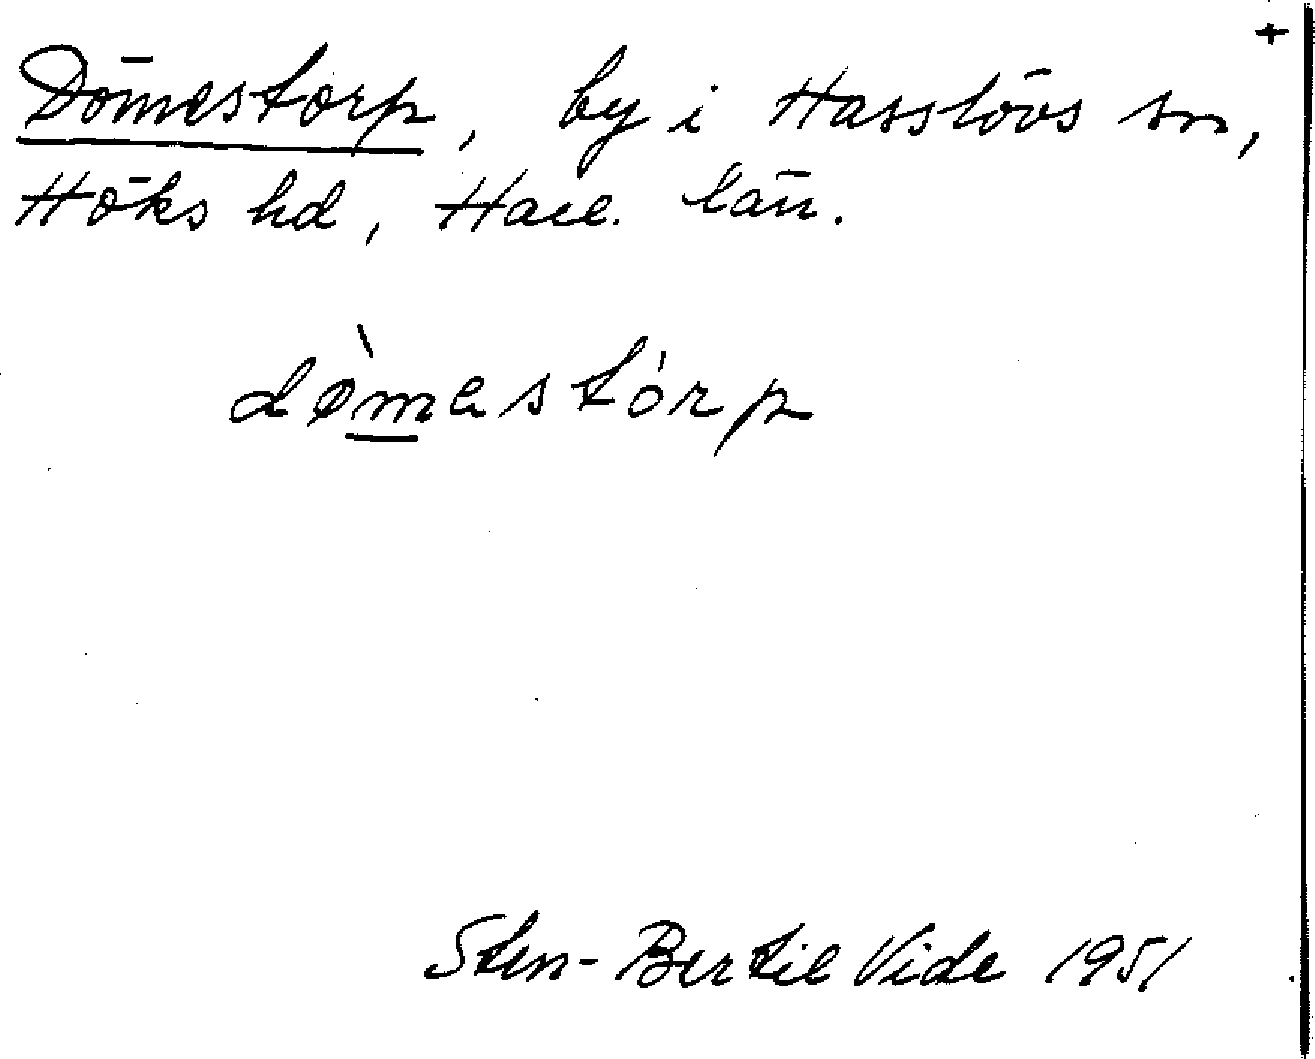 +
Dömestorp, by i Hasslövs sn,
Höks hd, Hall. län.
dø̀mestórp
Sten-Bertil Vide 1951